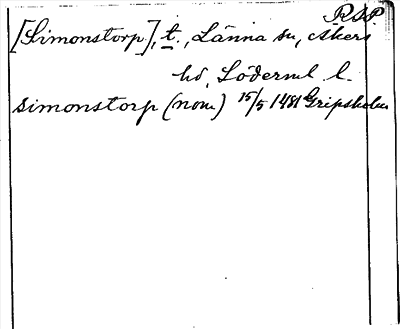 RSP.
[Simonstorp], t., Länna sn, Åkers
hd, Söderml l.
simonstorp (nom.) 15/5 1481 Gripsholm